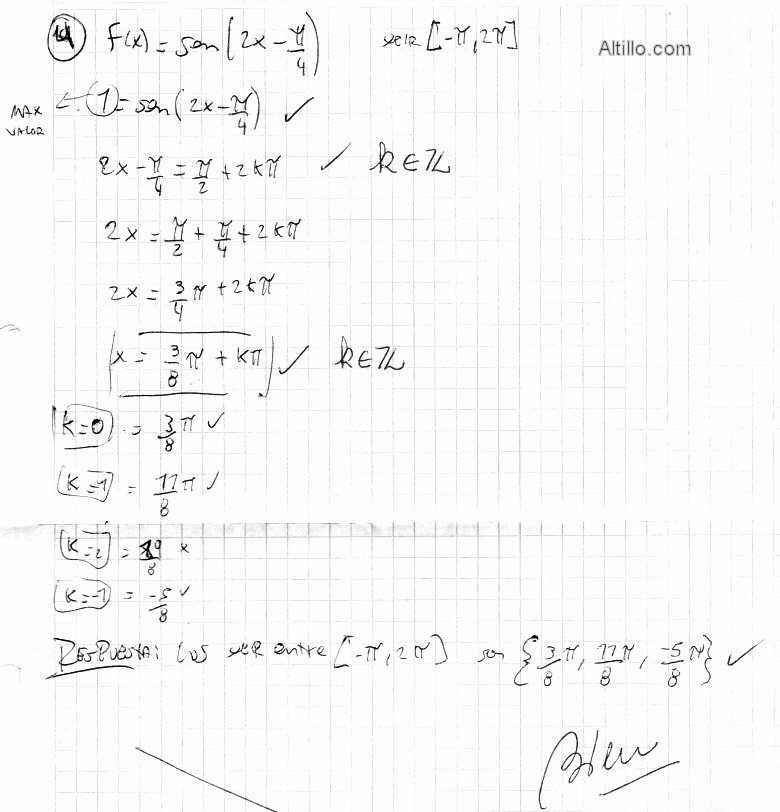 14) f(x) = sen(2x - π/4)    x∈ℝ [-π, 2π]
Altillo.com
MAX VALOR ← 1 = sen(2x - π/4) ✓
2x - π/4 = π/2 + 2kπ ✓ k ∈ ℤ
2x = π/2 + π/4 + 2kπ
2x = 3/4 π + 2kπ
x = 3/8 π + kπ ✓ k ∈ ℤ
k=0 = 3/8 π ✓
k=1 = 11/8 π ✓
k=2 = 19/8 x
k=-1 = -5/8 ✓
RESPUESTA: LOS x∈ℝ entre [-π, 2π] son {3/8 π, 11/8 π, -5/8 π} ✓
Bien